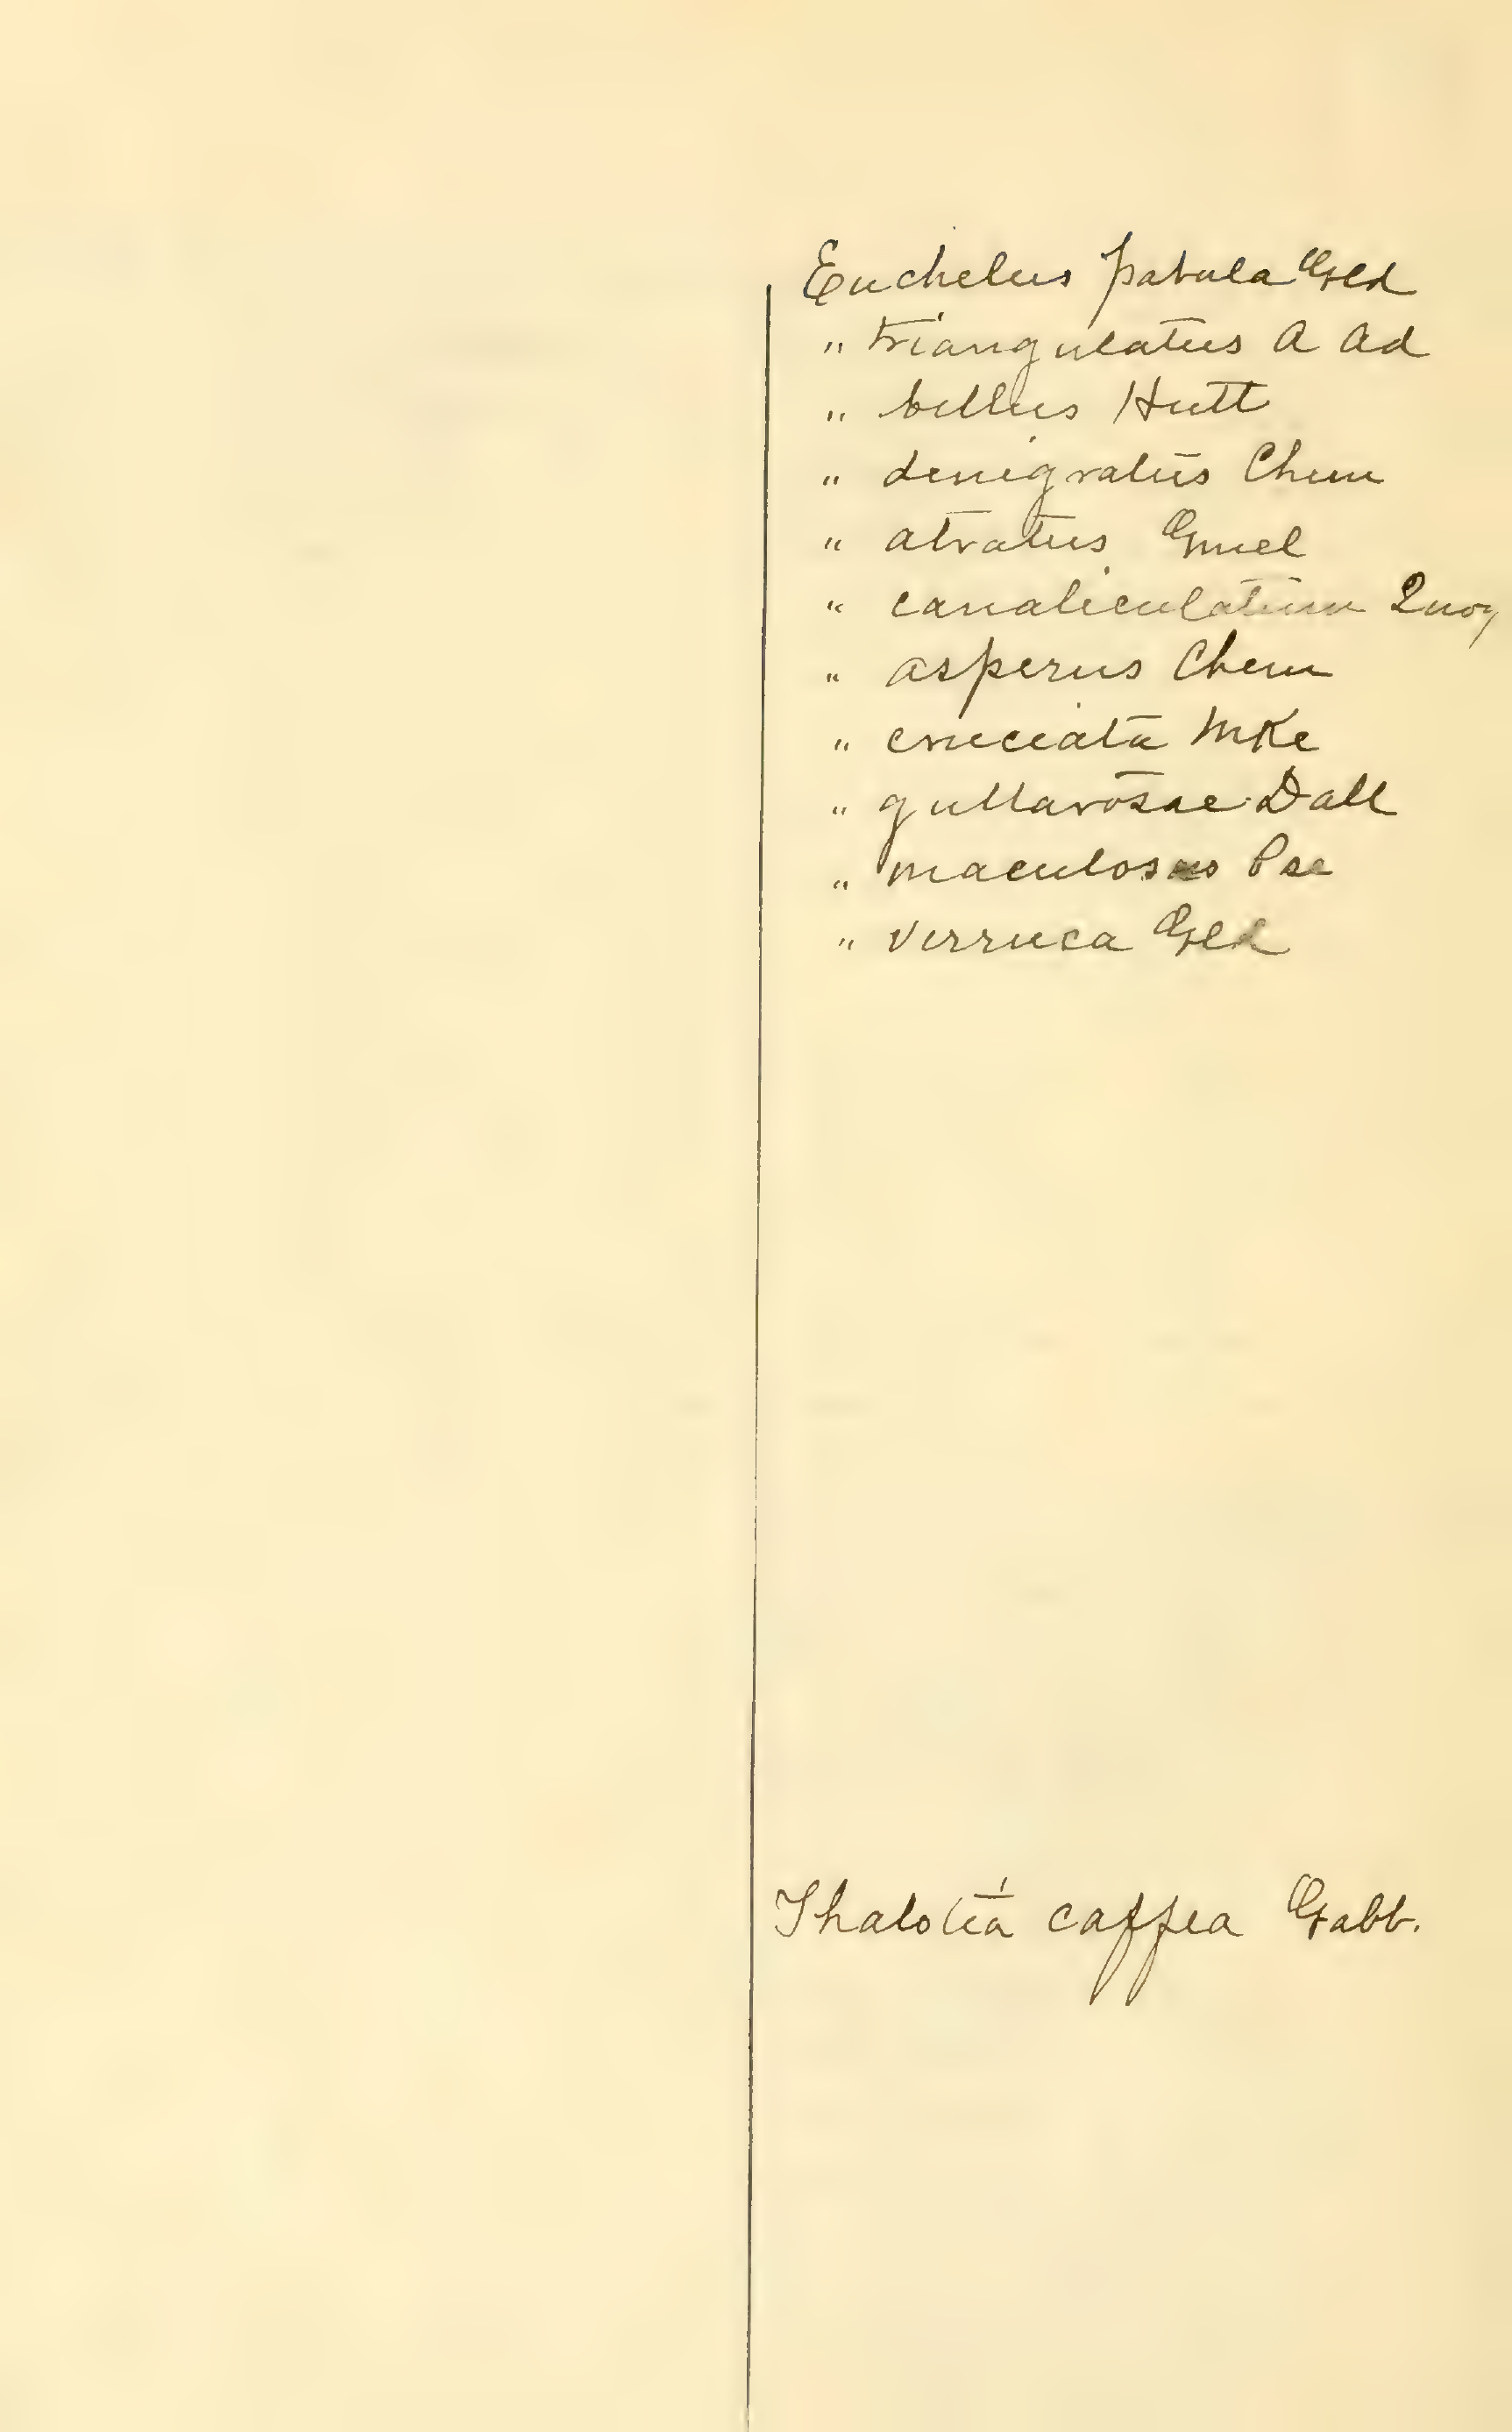 Euchelus patula Gld
" triangulatus A Ad
" bellus Hutt
" denigratus Chem
" atratus Gmel
" canaliculatum Quoy
" asperus Chem
" cruciata Mke
" guttarosae Dall
" maculosus Pse
" verruca Gld
Thalotia caffea Gabb.